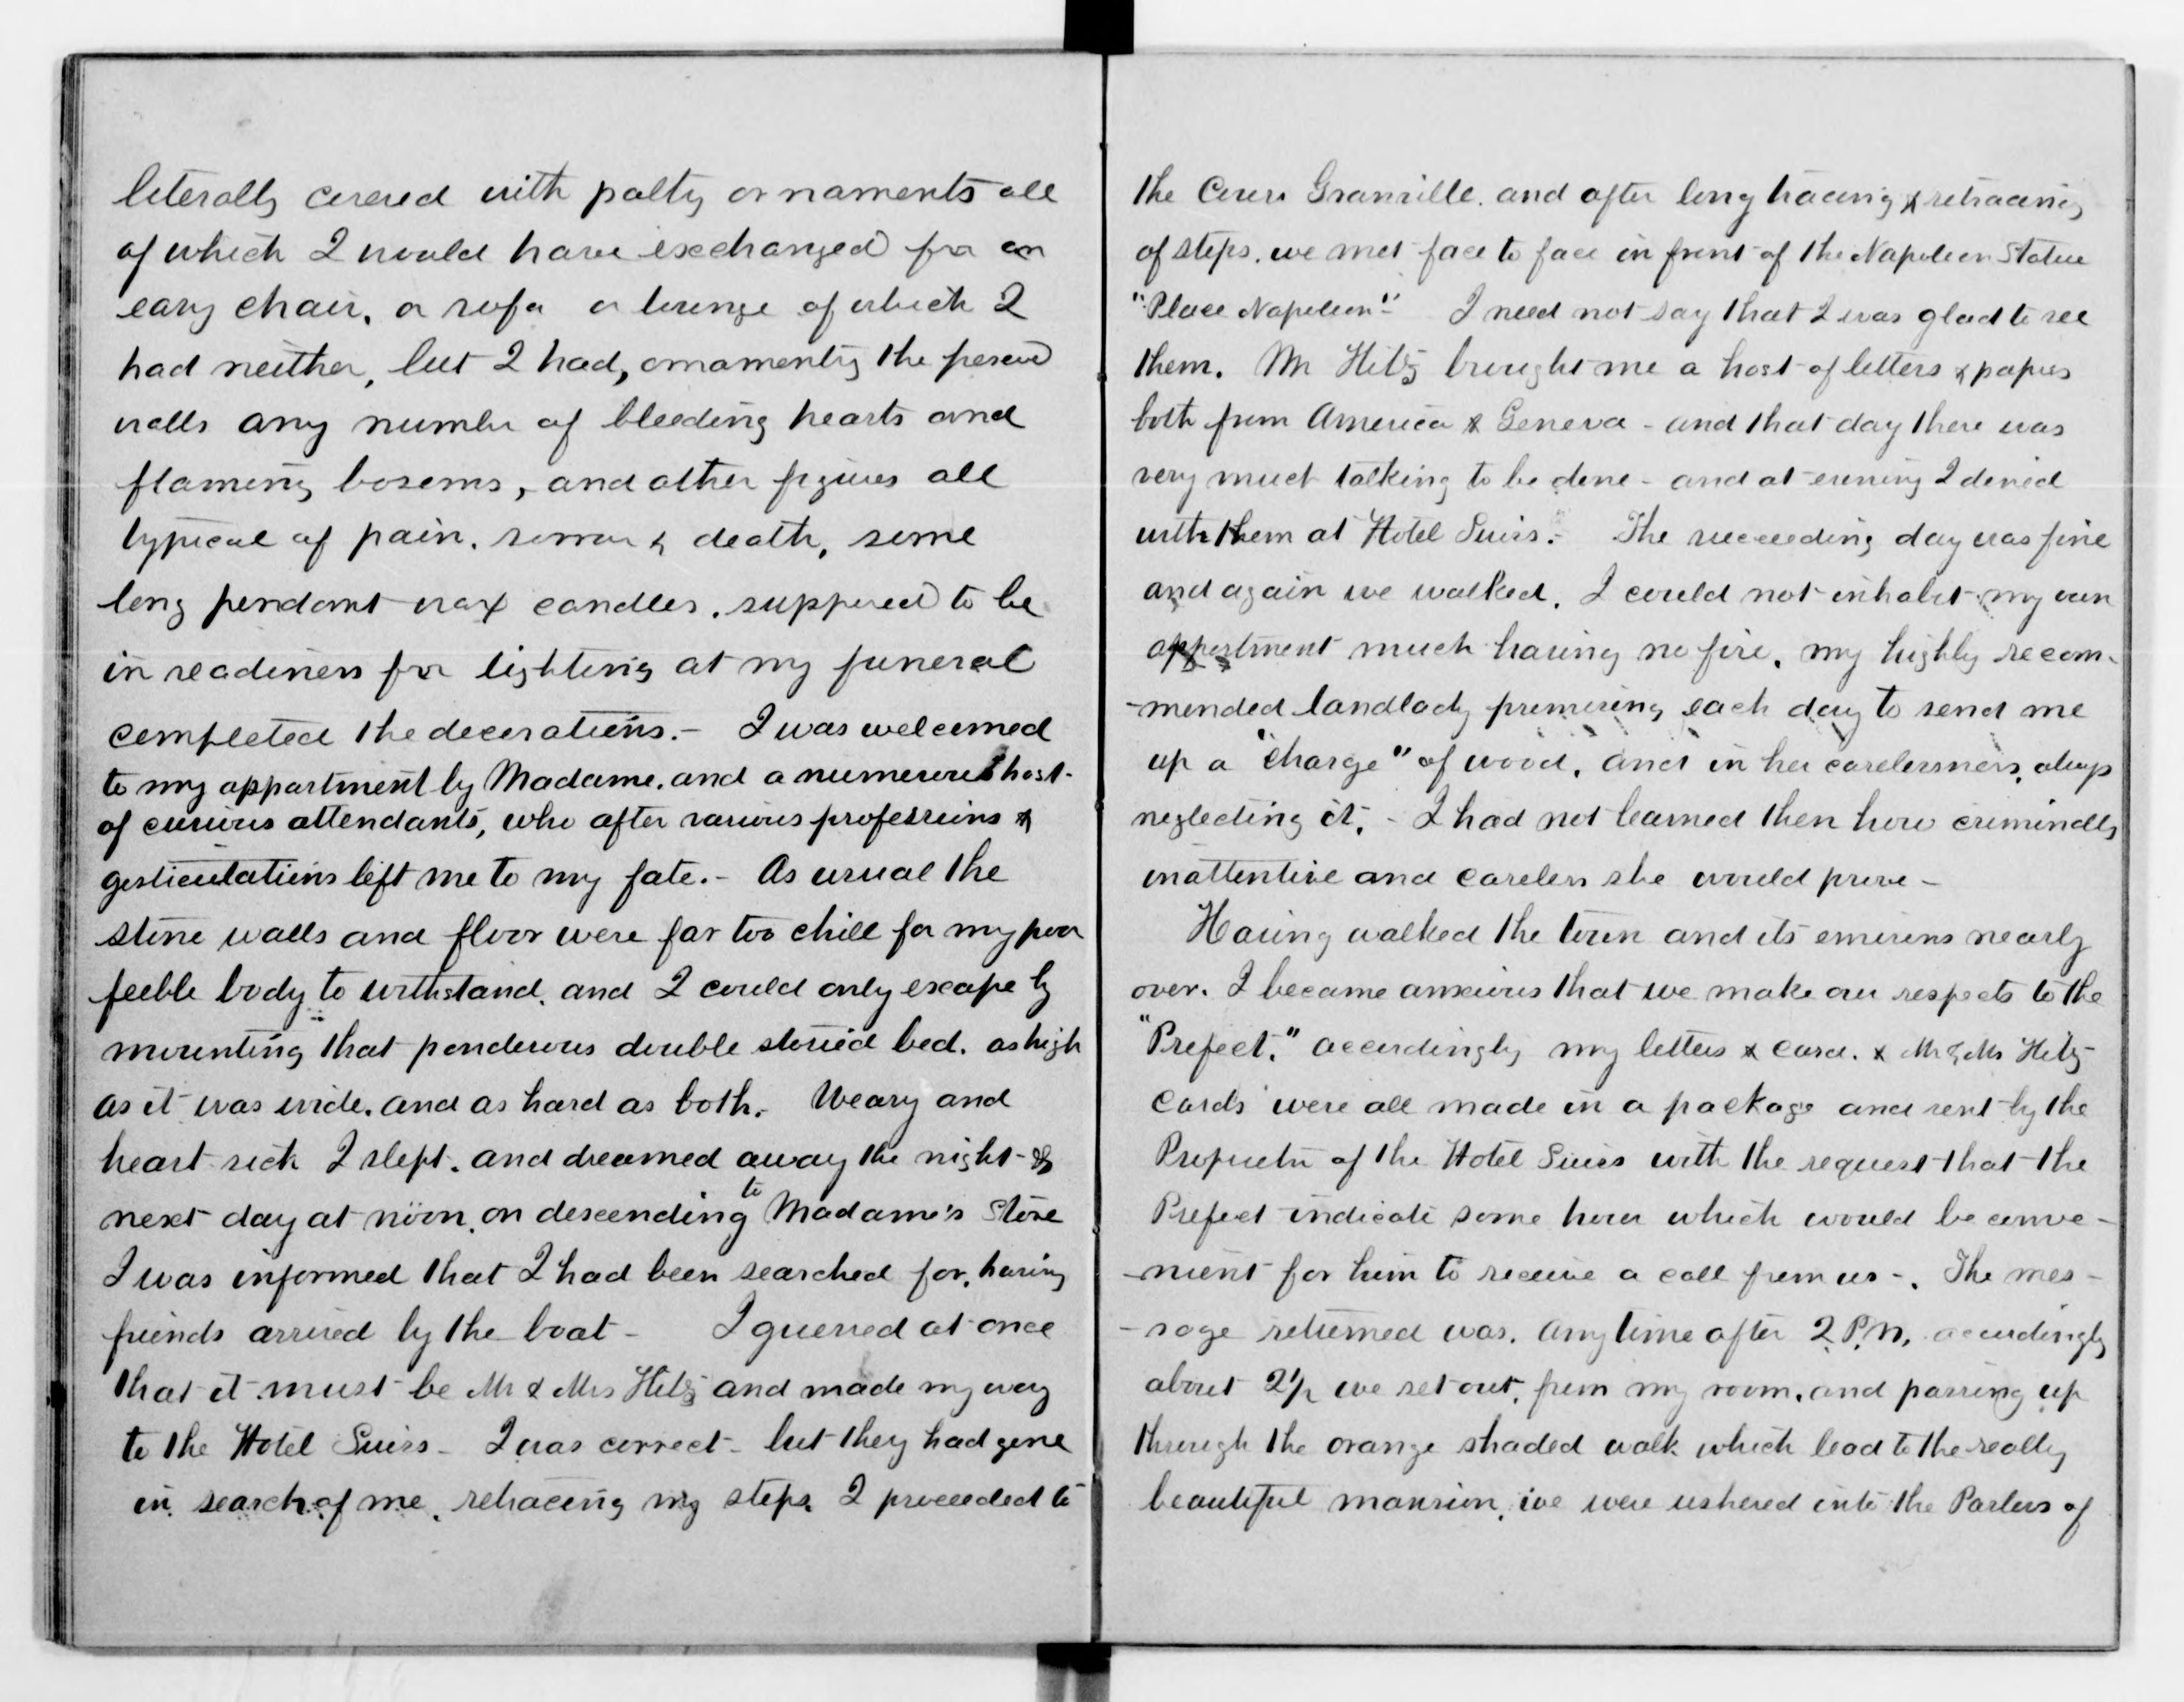 literally covered with paltry ornaments all
of which I would have exchanged for an
easy chair, a sofa or lounge of which I
had neither, but I had, ornamenting the
walls any number of bleeding hearts and
flaming bosoms, and other figures all
typical of pain, sorrow & death, some
long pendant wax candles, supposed to be
in readiness for lighting at my funeral
completed the decorations. - I was welcomed
to my appartment by Madame, and a numerous host
of curious attendants, who after various professions &
gesticulations left me to my fate. - As usual the
stone walls and floor were far too chill for my poor
feeble body to withstand, and I could only escape by
mounting that ponderous double storied bed. as high
as it was wide, and as hard as both. Weary and
heart sick I slept, and dreamed away the night - &
next day at noon, on descending to Madame's Store
I was informed that I had been searched for, having
friends arrived by the boat - I guessed at once
that it must be Mr & Mrs Hitz and made my way
to the Hotel Suiss - I was correct - but they had gone
in search of me, retracing my steps, I proceeded to
the Cours Granville. and after long tracing & retracing
of steps, we met face to face in front of the Napoleon Statue
"Place Napoleon" I need not say that I was glad to see
them. Mr Hitz brought me a host of letters & papers
both from America & Geneva - and that day there was
very much talking to be done - and at evening I dined
with them at Hotel Suiss. - The succeeding day was fine
and again we walked. I could not inhabit my own
appartment much having no fire, my highly recom-
-mended landlady promising each day to send me
up a "charge" of wood, and in her carelessness, always
neglecting it. - I had not learned then how criminally
inattentive and careless she would prove -
Having walked the town and its environs nearly
over. I became anxious that we make our respects to the
"Prefect." accordingly my letters & card. & Mr & Mrs Hitz
cards were all made in a package and sent by the
Proprietor of the Hotel Suiss with the request that the
Prefect indicate some hour which would be conve-
-nient for him to receive a call from us -. The mes-
-sage returned was. Any time after 2 P.M. accordingly
about 2½ we set out, from my room, and passing up
through the orange shaded walk which lead to the really
beautiful mansion, we were ushered into the Parlors of